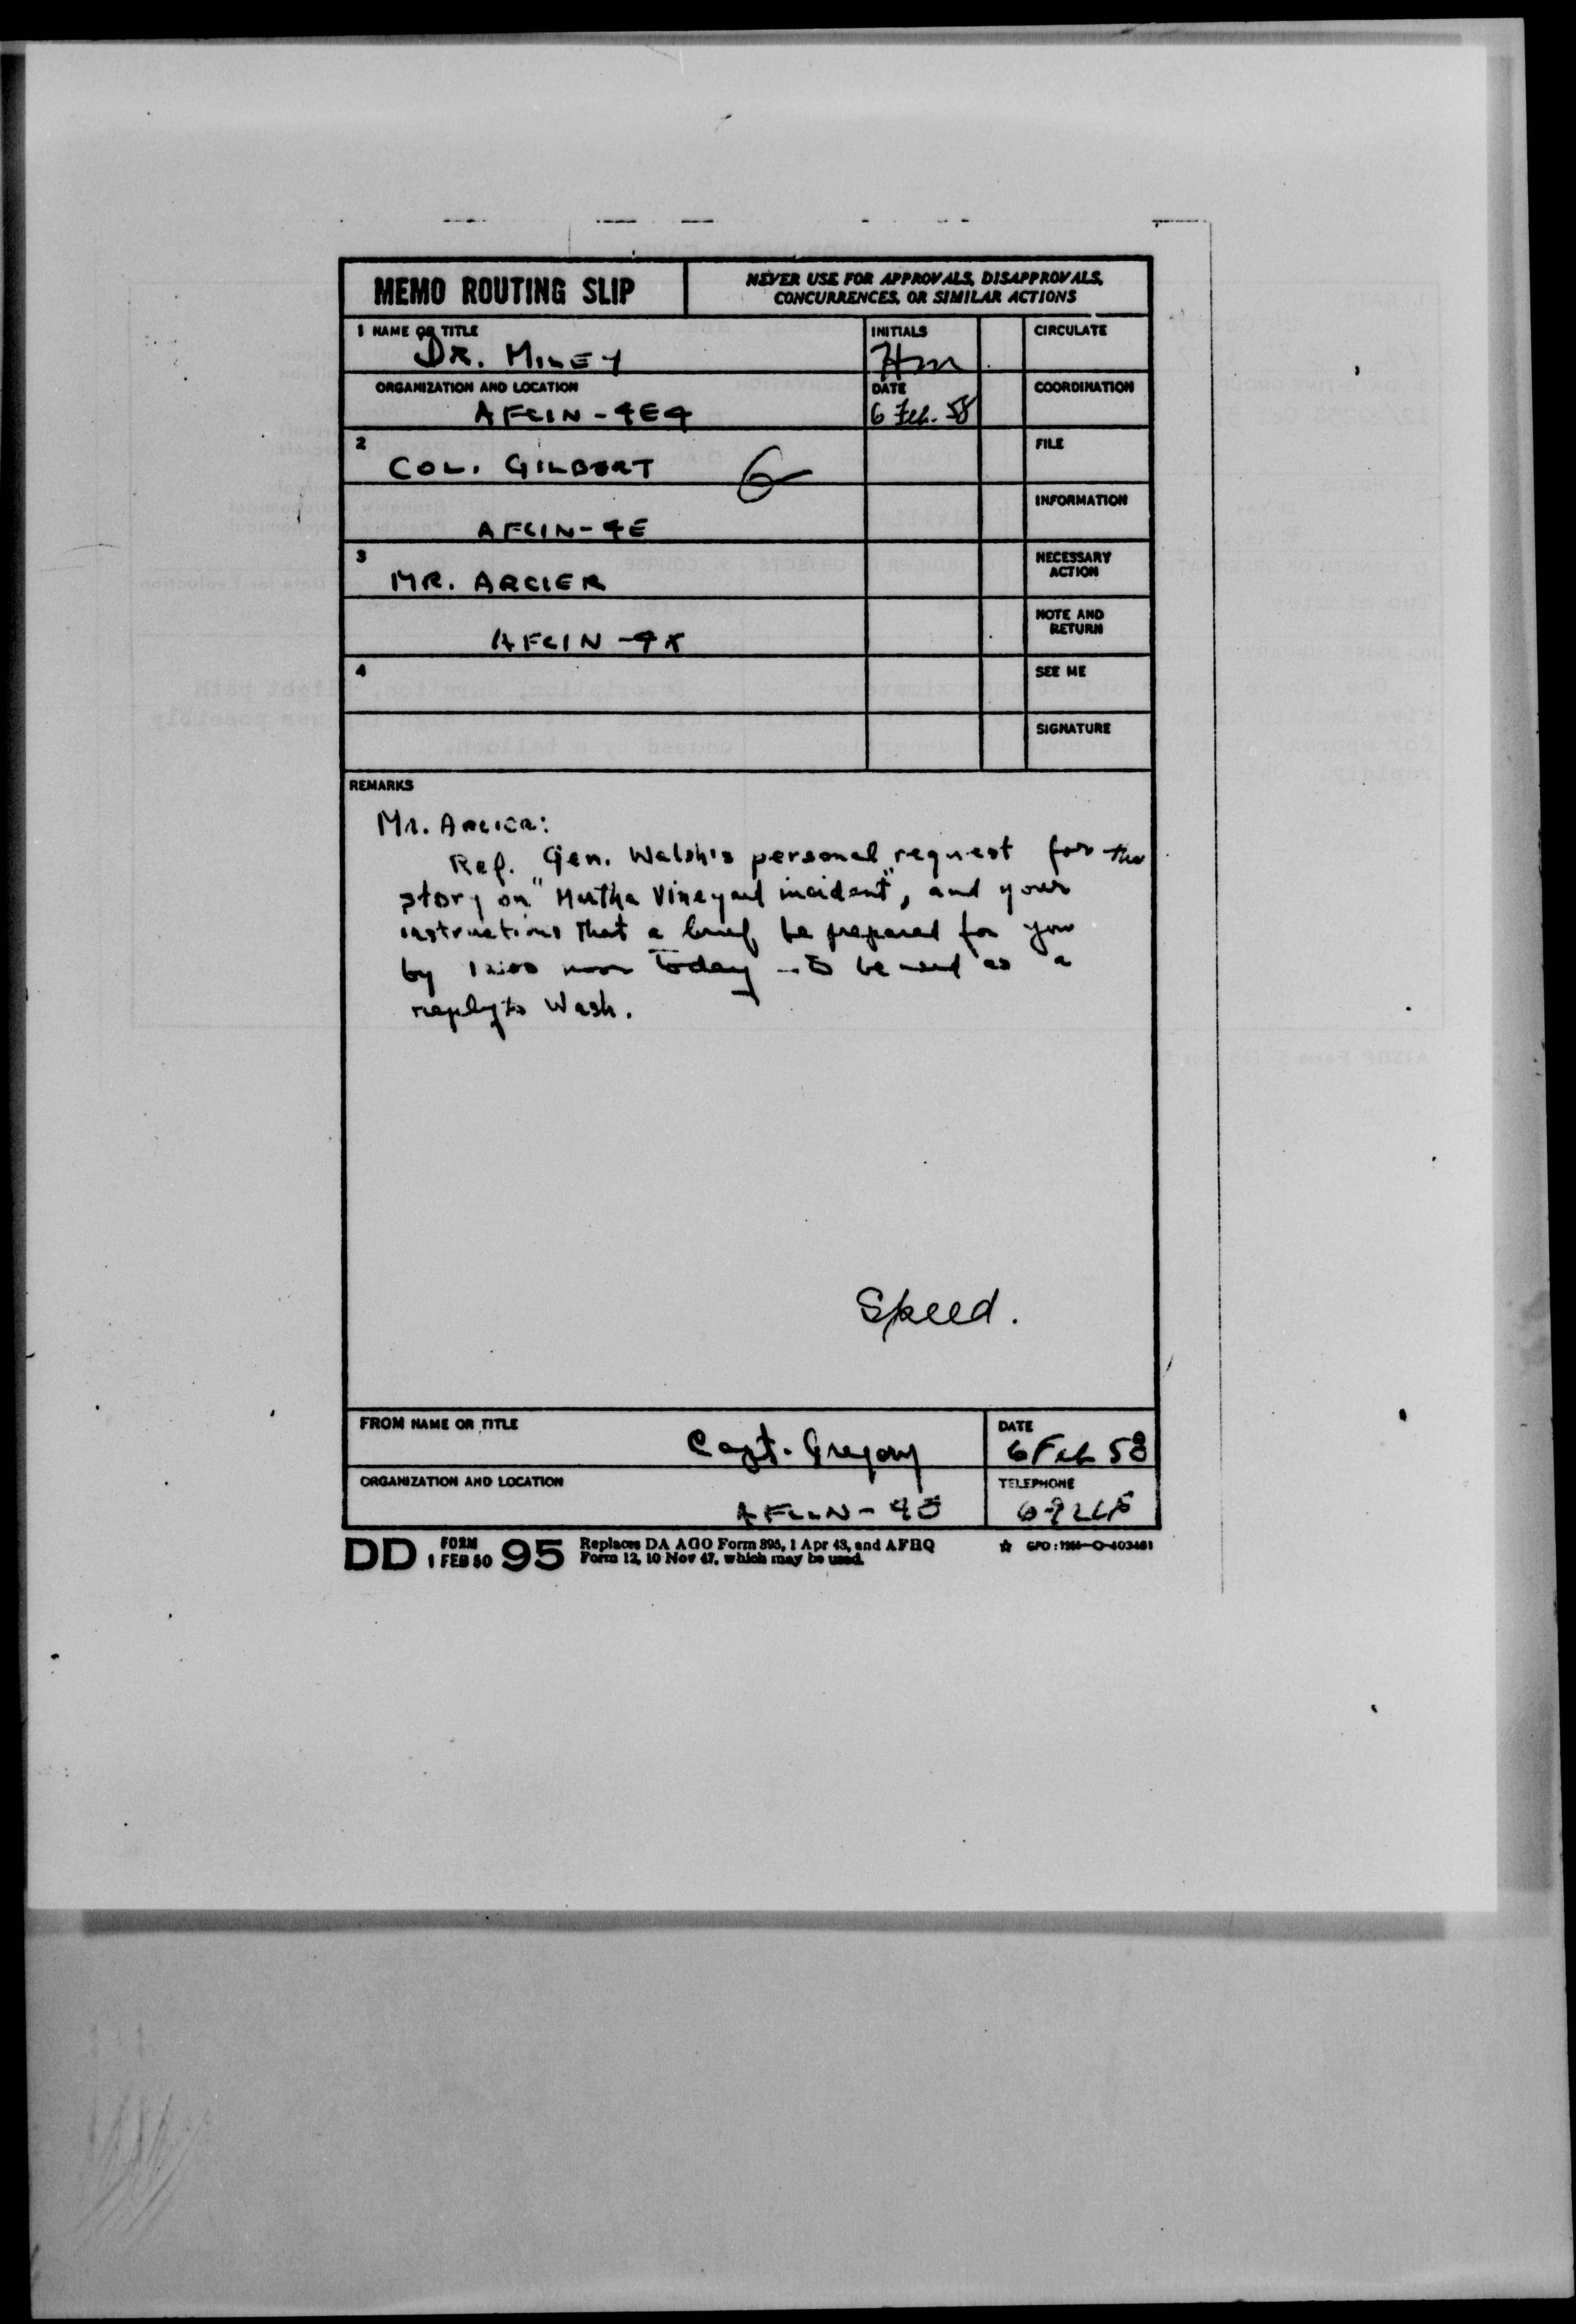 MEMO ROUTING SLIP
NEVER USE FOR APPROVALS, DISAPPROVALS,
CONCURRENCES, OR SIMILAR ACTIONS
1 NAME OR TITLE
DR. MILEY
INITIALS
HM
CIRCULATE
ORGANIZATION AND LOCATION
AFCIN-4E4
DATE
6 Feb. 58
COORDINATION
2
COL. GILBERT
G
FILE
AFCIN-4E
INFORMATION
3
MR. ARCIER
NECESSARY
ACTION
AFCIN-4X
NOTE AND
RETURN
4
SEE ME
SIGNATURE
REMARKS
Mr. Arcier:
Ref. Gen. Walsh's personal request for the
story on "Martha Vineyard incident", and your
instructions that a brief be prepared for you
by 1200 noon today to be used as a
reply to Wash.
Speed.
FROM NAME OR TITLE
Capt. Gregory
DATE
6 Feb 58
ORGANIZATION AND LOCATION
TELEPHONE
DD FORM 1 FEB 50 95
Replaces DA AGO Form 895, 1 Apr 43, and AFHQ
Form 12, 10 Nov 47, which may be used.